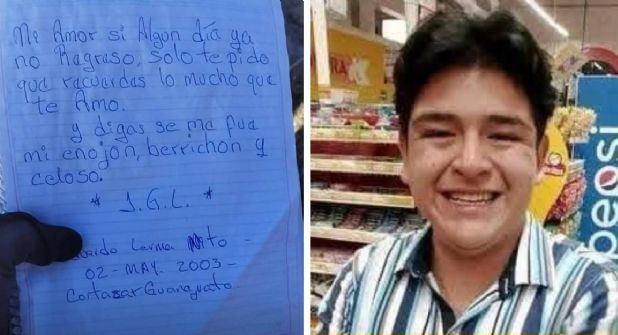 Mi Amor si Algún día ya
no Ragraso, solo te pido
qua racuardas lo mucho que
te Amo.
y digas se ma fua
mi enojon, berrichon y
celoso.
* J.G.L. *
Larma
02 - MAY. 2003 -
Cortazar Guanajuato.
pepsi